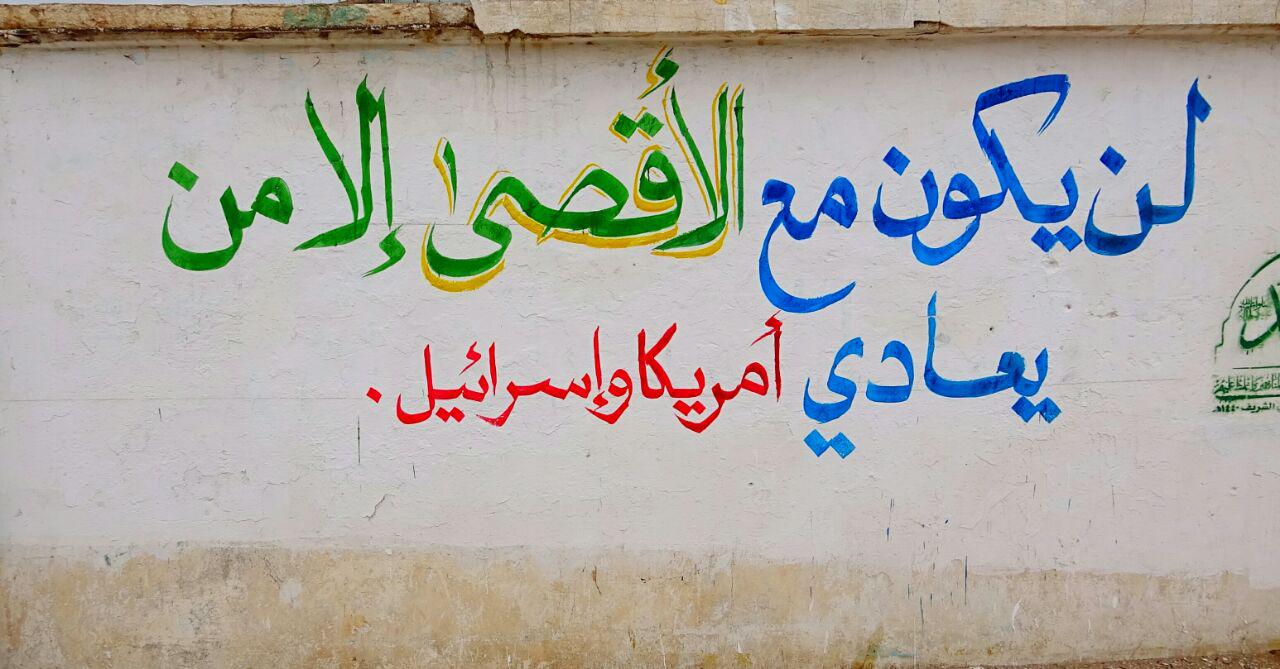 لن يكون مع الأقصى إلا من
يعادي أمريكا وإسرائيل.
الشريف ١٤٤٠هـ